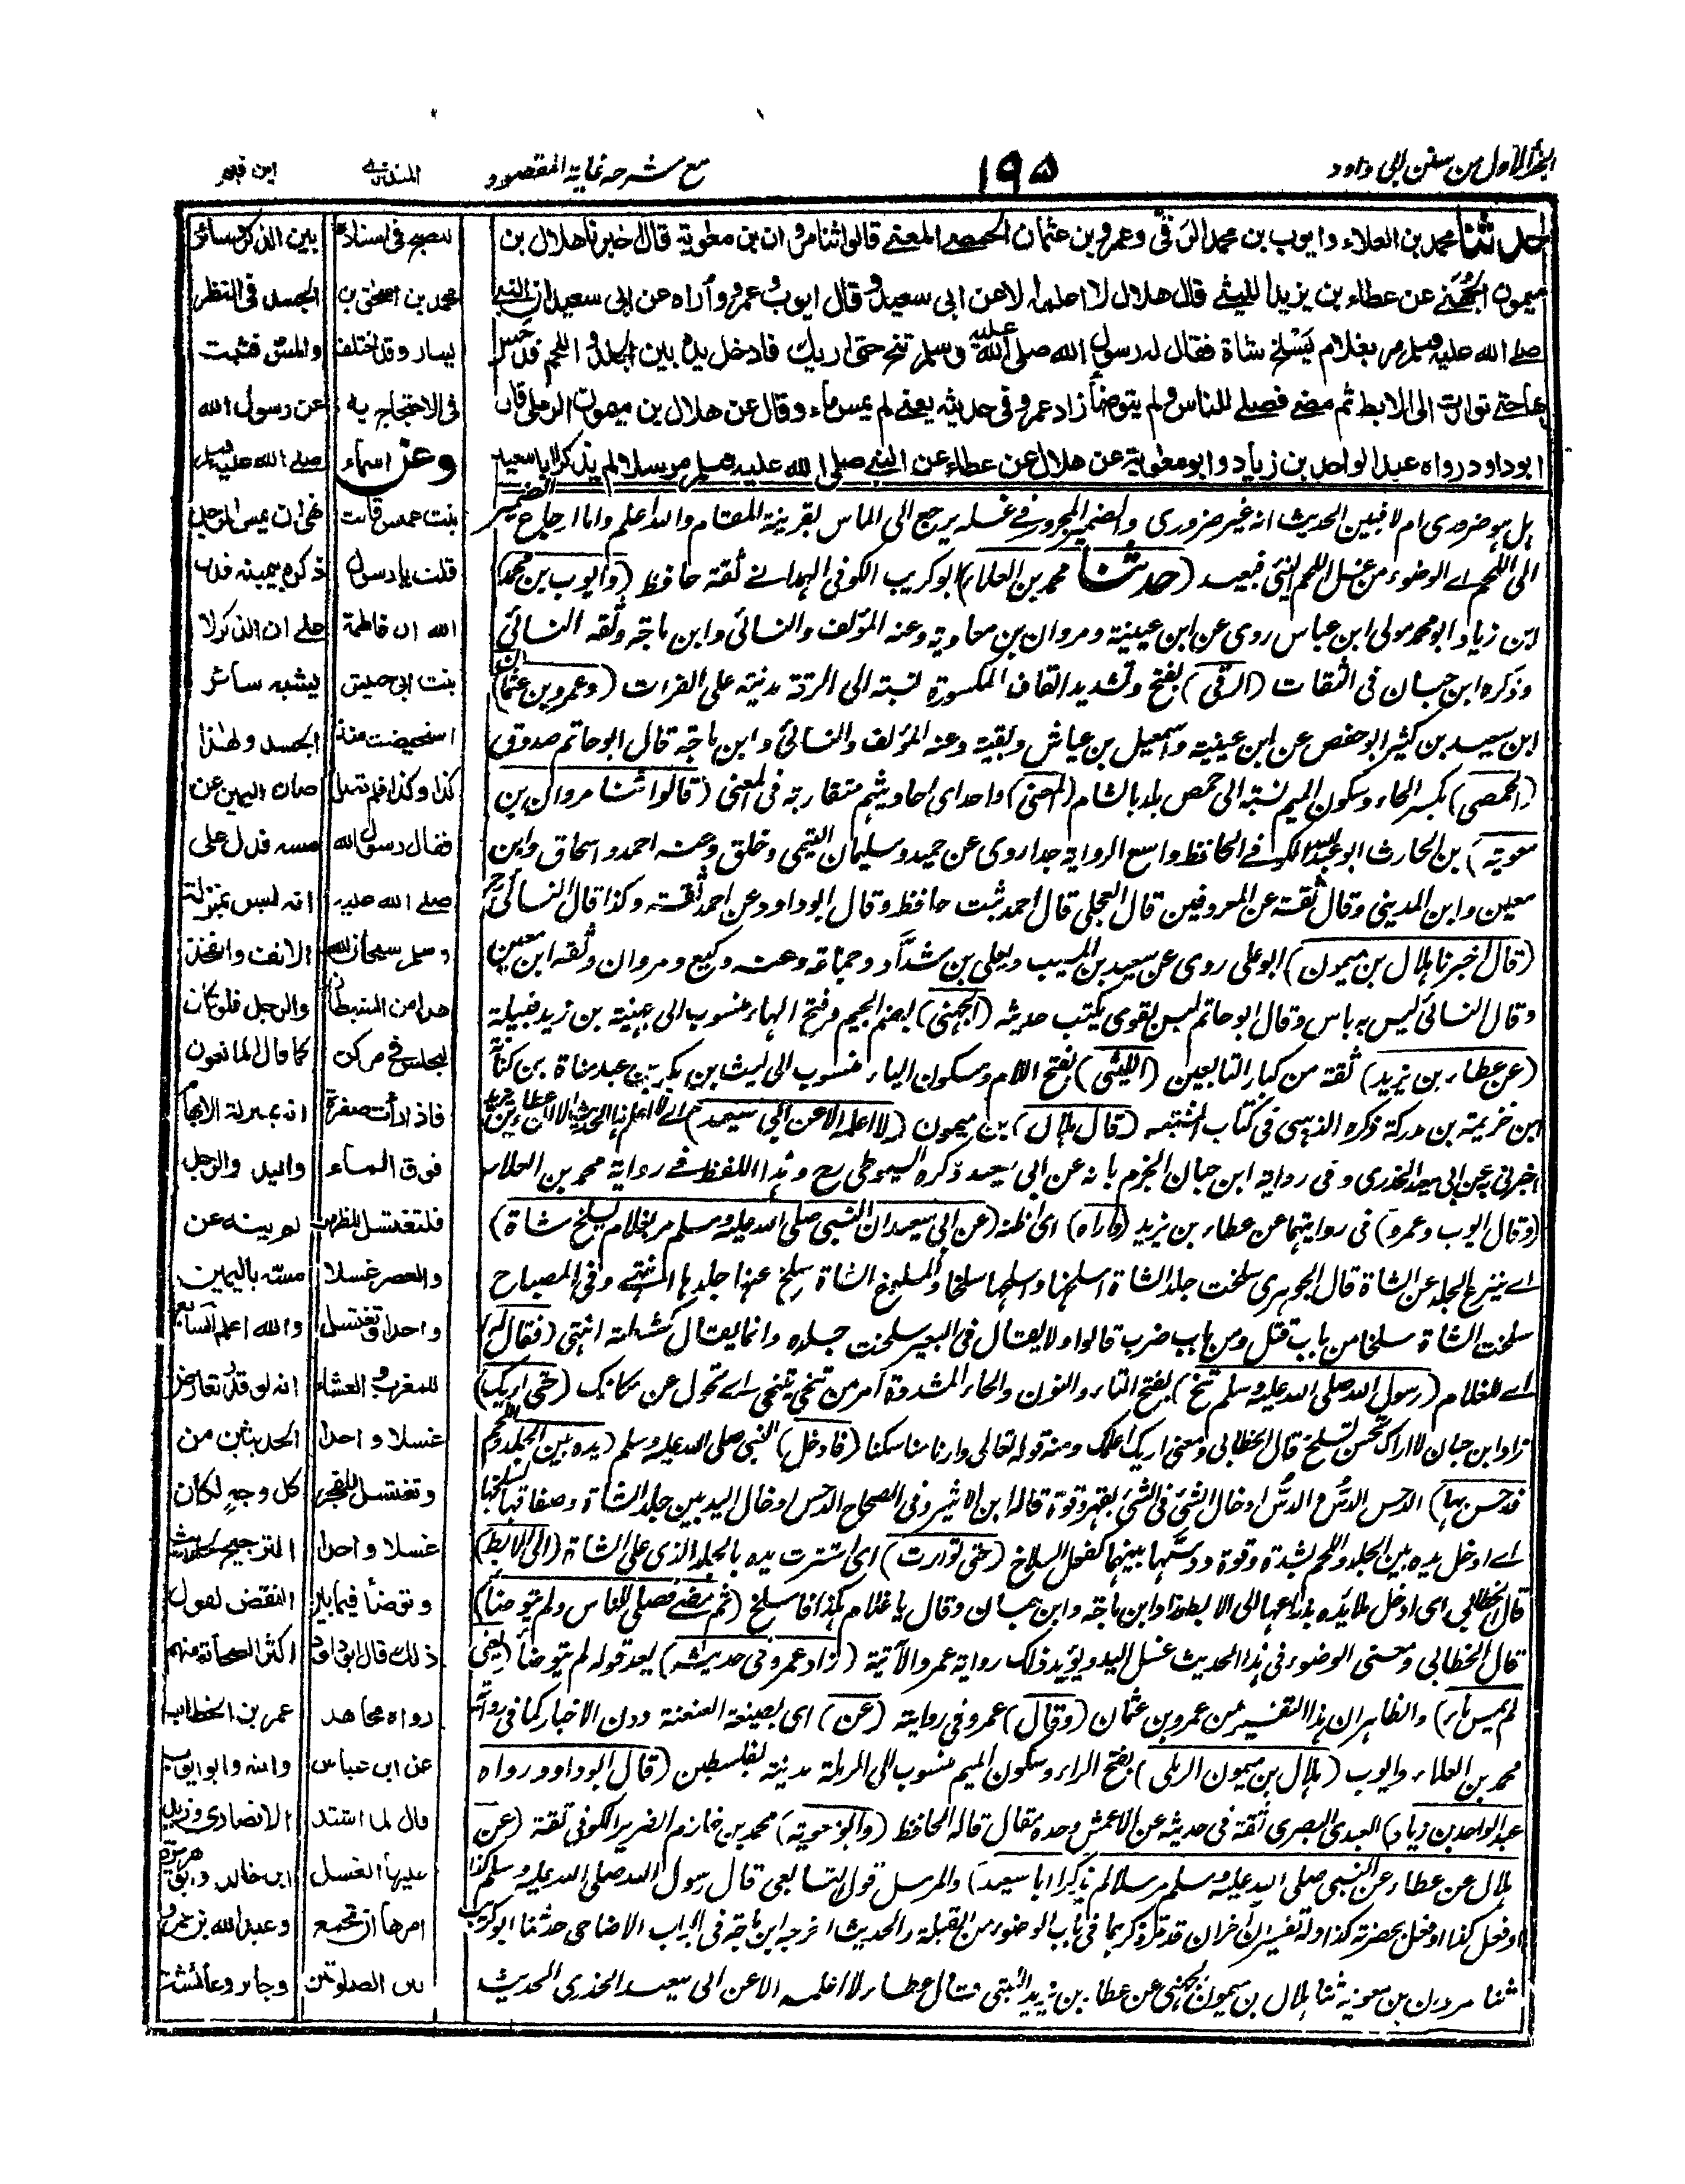 الجزء الاول من سنن ابی داود
١٩٥
مع شرحه غاية المقصود
المنذري
ابن قيم
حدثنا محمد بن العلاء وايوب بن محمد الرَقّي وعمرو بن عثمان الحمصي المعنى قالوا ثنا مروان بن معوية قال اخبرنا هلال بن
ميمون الجُهَني عن عطاء بن يزيد الليثي قال هلال لا اعلمه الا عن ابى سعيد وقال ايوب وعمرو وأراه عن ابى سعيد ان النبي
صلى الله عليه وسلم مر بغلام يَسْلخ شاة فقال له رسول الله صلى الله عليه وسلم تنح حتى اريك فادخل يده بين الجلد واللحم فدحس
بها حتى توارت الى الابط ثم مضى فصلى للناس ولم يتوضأ زاد عمرو في حديثه يعني لم يمس ماء وقال عن هلال بن ميمون الرملي قال
ابوداود رواه عبد الواحد بن زياد وابو معوية عن هلال عن عطاء عن النبي صلى الله عليه وسلم مرسلا لم يذكرا ابا سعيد
بل هو ضرورى ام لا فبين الحديث انه غير ضرورى والضمير المجرور في غسله يرجع الى الماس بقرينة المقام والله اعلم واما ارجاع الضمير
الى اللحم اى الوضوء من غسل اللحم النئى فبعيد (حدثنا محمد بن العلاء) ابو كريب الكوفى الهمدانى ثقة حافظ (وايوب بن محمد)
ابن زياد ابو محمد مولى ابن عباس روى عن ابن عيينة ومروان بن معاوية وعنه المؤلف والنسائى وابن ماجة وثقه النسائى
وذكره ابن حبان فى الثقات (الرقى) بفتح وتشديد القاف المكسورة نسبة الى الرقة مدينة على الفرات (وعمرو بن عثمان)
ابن سعيد بن كثير ابو حفص عن ابن عيينة واسمعيل بن عياش وبقية وعنه المؤلف والنسائى وابن ماجة قال ابو حاتم صدوق
(الحمصى) بكسر الحاء وسكون الميم نسبة الى حمص بلد بالشام (المعنى) واحد اى احاديثهم متقاربة فى المعنى (قالوا ثنا مروان بن
معوية) بن الحارث ابو عبد الله الكوفى الحافظ واسع الرواية جدا روى عن حميد وسليمان التيمى وخلق وعنه احمد واسحاق وابن
معين وابن المدينى وقال ثقة عن المعروفين قال العجلى قال احمد ثبت حافظ وقال ابو داود عن احمد ثقة وكذا قال النسائى
(قال اخبرنا هلال بن ميمون) ابو على روى عن سعيد بن المسيب ويعلى بن شداد وجماعة وعنه وكيع ومروان وثقه ابن معين
وقال النسائى ليس به باس وقال ابو حاتم ليس بقوى يكتب حديثه (الجهنى) بضم الجيم وفتح الهاء منسوب الى جهينة بن زيد قبيلة
(عن عطاء بن يزيد) ثقة من كبار التابعين (الليثى) بفتح اللام وسكون الياء منسوب الى ليث بن بكر بن عبد مناة بن كنانة
ابن خزيمة بن مدركة ذكره الذهبى فى كتاب المشتبه (قال هلال) بن ميمون (لا اعلمه الا عن ابى سعيد) اى لا اعلم هذا الحديث الا ان عطاء بن يزيد
اخبرنى عن ابى سعيد الخدرى وفى رواية ابن حبان الجزم بانه عن ابى سعيد ذكره السيوطى رح وهذا اللفظ فى رواية محمد بن العلاء
(وقال ايوب وعمرو) فى روايتهما عن عطاء بن يزيد (واراه) اى اظنه (عن ابى سعيد ان النبى صلى الله عليه وسلم مر بغلام يسلخ شاة)
اى ينزع الجلد عن الشاة قال الجوهرى سلخت جلد الشاة اسلخها واسلخها سلخا والمسلوخ الشاة سلخ عنها جلدها انتهى وفى المصباح
سلخت الشاة سلخا من باب قتل ومن باب ضرب قالوا ولا يقال فى البعير سلخت جلده وانما يقال كشطته انتهى (فقال له)
اى للغلام (رسول الله صلى الله عليه وسلم تنح) بفتح التاء والنون والحاء المشددة امر من تنحى يتنحى اى تحول عن مكانك (حتى اريك)
زاد ابن حبان لا اراك تحسن تسلخ قال الخطابى ومعنى اريك اعلمك ومنه قوله تعالى وارنا مناسكنا (فادخل) النبى صلى الله عليه وسلم (يده بين الجلد واللحم
فدحس بها) الدحس الدسّ والدسّ ادخال الشئ فى الشئ بقهر وقوة قاله ابن الاثير وفى الصحاح الدحس ادخال اليد بين جلد الشاة وصفاقها لسلخها
اى ادخل يده بين الجلد واللحم بشدة وقوة ودسّها بينهما كفعل السلاخ (حتى توارت) اى استترت يده بالجلد الذى على الشاة (الى الابط)
قال الخطابى اى ادخل ملأ يده بذراعها الى الابط وزاد ابن ماجة وابن حبان وقال يا غلام هكذا فاسلخ (ثم مضى فصلى للناس ولم يتوضأ)
قال الخطابى ومعنى الوضوء فى هذا الحديث غسل اليد ويؤيد ذلك رواية عمرو الآتية (زاد عمرو فى حديثه) بعد قوله لم يتوضأ (يعنى
لم يمس ماء) والظاهر ان هذا التفسير من عمرو بن عثمان (وقال) عمرو فى روايته (عن) اى بصيغة العنعنة دون الاخبار كما فى رواية
محمد بن العلاء وايوب (هلال بن ميمون الرملى) بفتح الراء وسكون الميم منسوب الى الرملة مدينة بفلسطين (قال ابو داود ورواه
عبد الواحد بن زياد) العبدى البصرى ثقة فى حديثه عن الاعمش وحده مقال قاله الحافظ (وابو معوية) محمد بن خازم الضرير الكوفى ثقة (عن
هلال عن عطاء عن النبى صلى الله عليه وسلم مرسلا لم يذكرا ابا سعيد) والمرسل قول التابعى قال رسول الله صلى الله عليه وسلم كذا
او فعل كذا او فعل بحضرته كذا وله تفسيران اخران قد مر ذكرهما فى باب الوضوء من القبلة والحديث اخرجه ابن ماجة فى ابواب الاضاحى حدثنا ابو كريب
ثنا مروان بن معوية ثنا هلال بن ميمون الجهنى عن عطاء بن يزيد الليثى قال عطاء لا اعلمه الا عن ابى سعيد الخدرى الحديث
محمد بن اسحق بن
يسار وقد اختلف
فى الاحتجاج به
وعن اسماء
بنت عميس قالت
قلت يا رسول
الله ان فاطمة
بنت ابى حبيش
استحيضت منذ
كذا وكذا فلم تصل
فقال رسول الله
صلى الله عليه
وسلم سبحان الله
هذا من الشيطان
لتجلس فى مركن
فاذا رأت صفرة
فوق الماء
فلتغتسل للظهر
والعصر غسلا
واحدا وتغتسل
للمغرب والعشاء
غسلا واحدا
وتغتسل للفجر
غسلا واحدا
وتوضأ فيما بين
ذلك قال ابو داود
رواه مجاهد
عن ابن عباس
قال لما اشتد
عليها الغسل
امرها ان تجمع
بين الصلوتين
بين الذكر وسائر
الجسد فى النظر
والمس فثبت
عن رسول الله
صلى الله عليه وسلم
نهى ان يمس الرجل
ذكره بيمينه فدل
على ان الذكر لا
يشبه سائر
الجسد ولهذا
صان اليمين عن
مسه فدل على
انه ليس بمنزلة
الانف والفخذ
والرجل فلو كان
كما قال المانعون
انه بمنزلة الابهام
واليد والرجل
لم ينه عن
مسه باليمين
والله اعلم السابع
انه لو قدر تعارض
الحديثين من
كل وجهٍ لكان
الترجيح لحديث
النقض لقول
اكثر الصحابة منهم
عمر بن الخطاب
وابنه وابو ايوب
الانصارى وزيد
ابن خالد وابو هريرة
وعبد الله بن عمرو
وجابر وعائشة